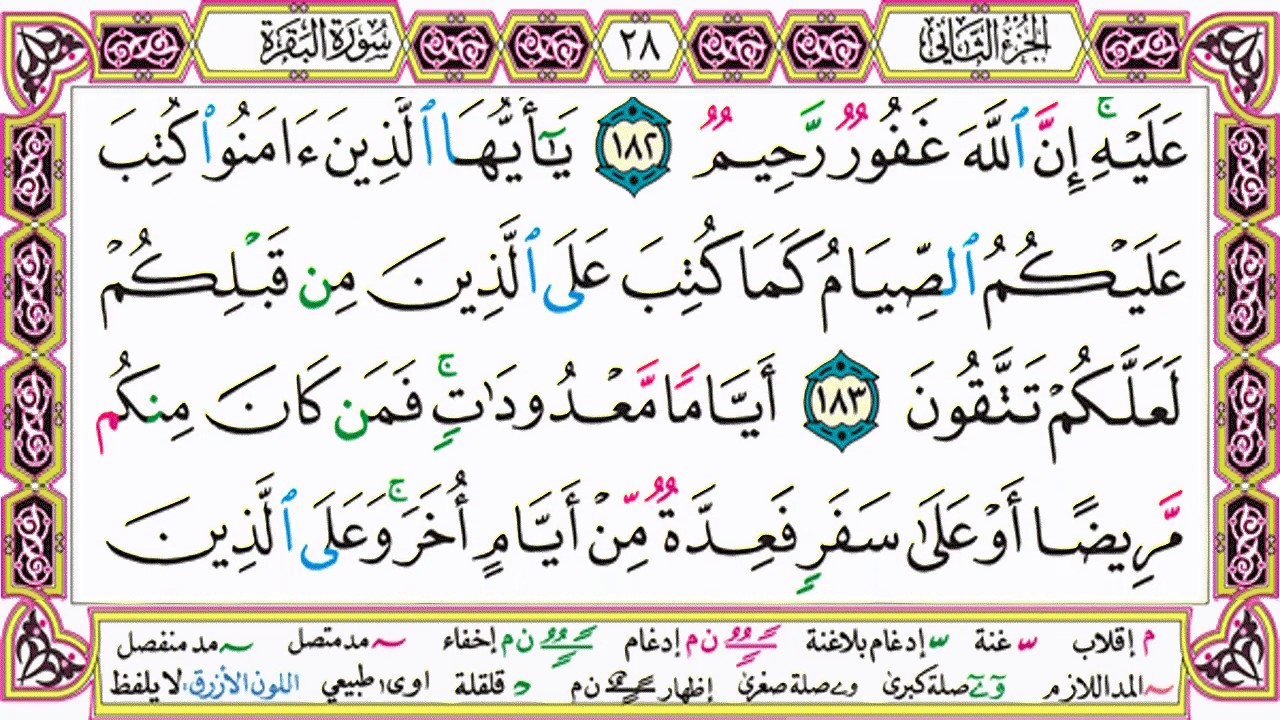 الجزء الثاني ٢٨ سورة البقرة
عَلَيْهِۚ إِنَّ ٱللَّهَ غَفُورٌ رَّحِيمٌ ١٨٢ يَٰٓأَيُّهَا ٱلَّذِينَ ءَامَنُوا۟ كُتِبَ
عَلَيْكُمُ ٱلصِّيَامُ كَمَا كُتِبَ عَلَى ٱلَّذِينَ مِن قَبْلِكُمْ
لَعَلَّكُمْ تَتَّقُونَ ١٨٣ أَيَّامًا مَّعْدُودَٰتٍۚ فَمَن كَانَ مِنكُم
مَّرِيضًا أَوْ عَلَىٰ سَفَرٍ فَعِدَّةٌ مِّنْ أَيَّامٍ أُخَرَۚ وَعَلَى ٱلَّذِينَ
م إقلاب ّ غنة ّ إدغام بلاغنة ن م إدغام ن م إخفاء ~ مد متصل ~ مد منفصل
~ المد اللازم و ے صلة كبرى و ے صلة صغرى إظهار ن م د قلقلة اوى طبيعي اللون الأزرق: لا يلفظ